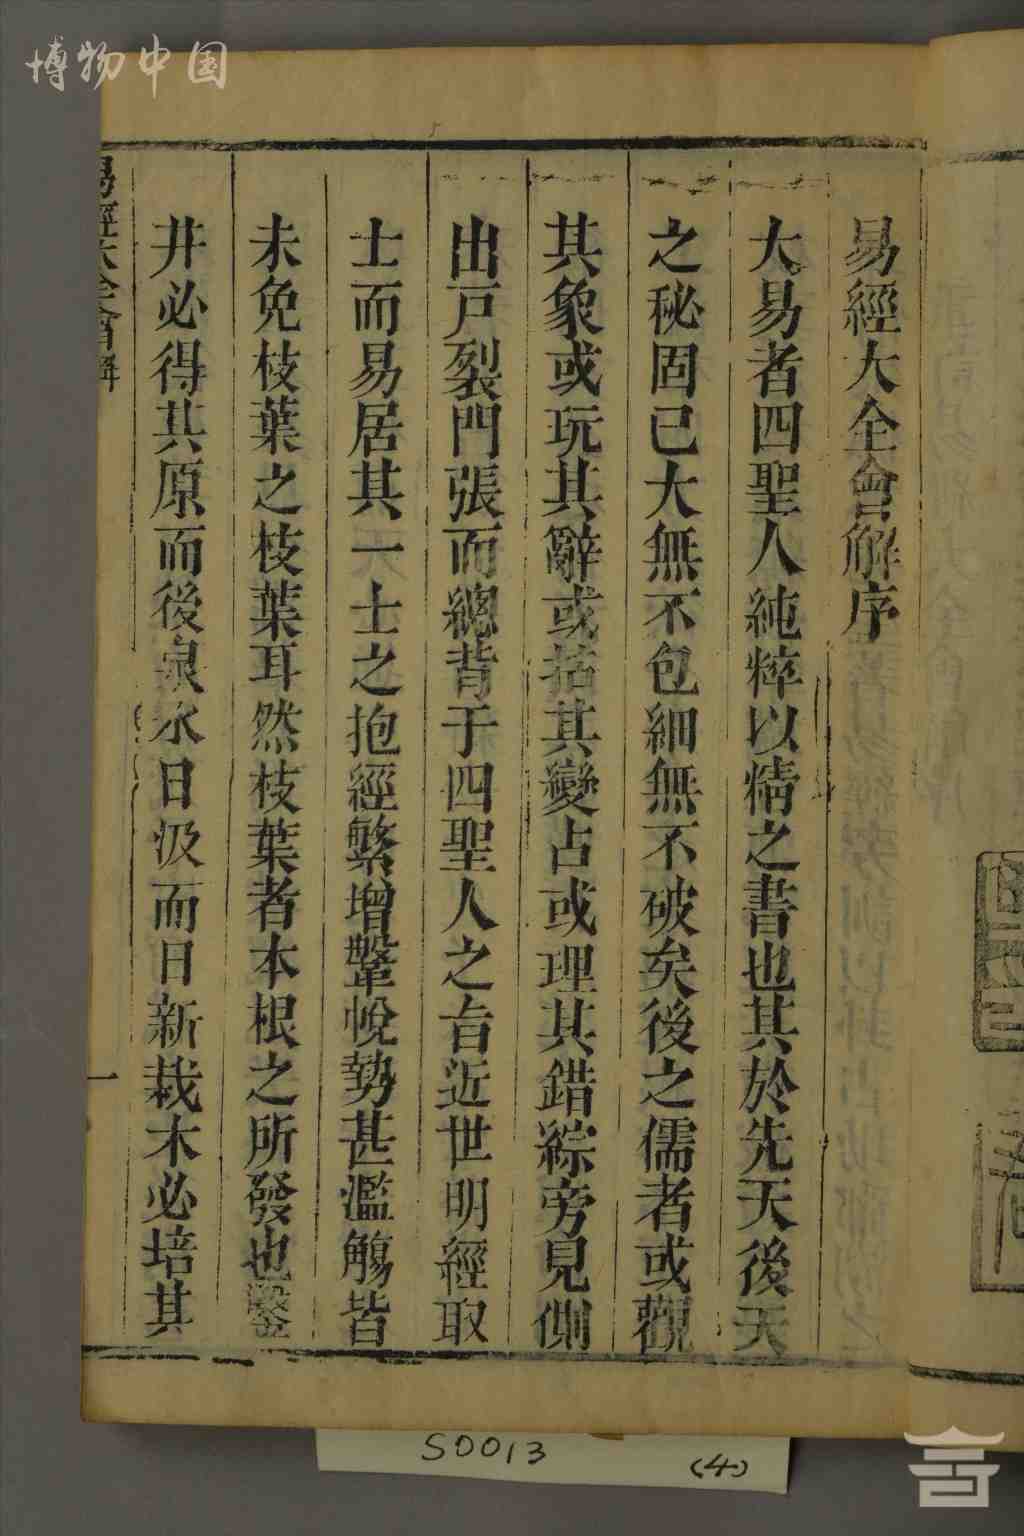 博物中国
易經大全會解序
大易者四聖人純粹以精之書也其於先天後天
之秘固已大無不包細無不破矣後之儒者或觀
其象或玩其辭或括其變占或理其錯綜旁見側
出戸裂門張而總背于四聖人之旨近世明經取
士而易居其一士之抱經繁增鞶帨勢甚濫觴皆
未免枝葉之枝葉耳然枝葉者本根之所發也鑿
井必得其原而後泉水日汲而日新栽木必培其
易經大全會解
一
S0013
(4)